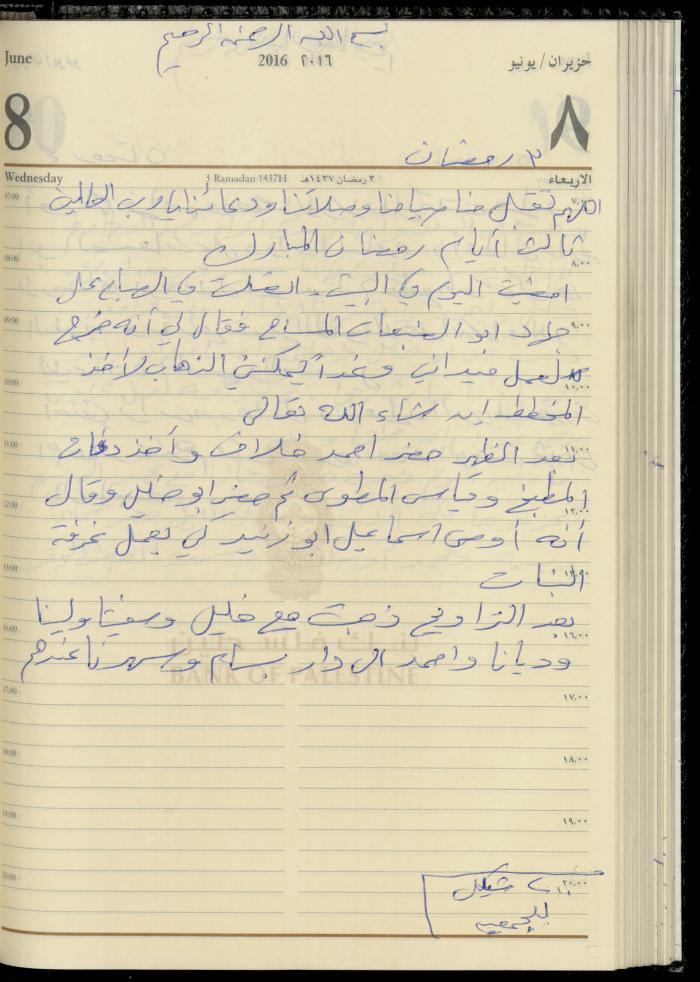 بسم الله الرحمن الرحيم
June 2016 ٢٠١٦ حزيران / يونيو
8 ٨
٣ رمضان
Wednesday 3 Ramadan 1437H ٣ رمضان ١٤٣٧هـ الاربعاء
اللهم تقبل منا صيامنا وصلاتنا ودعائنا يا رب العالمين
07:00 ٧,٠٠
ثالث أيام رمضان المبارك
08:00 ٨,٠٠
امضيت اليوم في البيت. اتصلت في الصباح على
09:00 ٩,٠٠
جهاد ابو الضبعات المساح فقال لي أنه خرج
لعمل ميداني وغداً يمكنني الذهاب لأخذ
10:00 ١٠,٠٠
المخطط إن شاء الله تعالى
11:00 ١١,٠٠
بعد الظهر حضر احمد خلاف وأخذ
المطبخ وقياس المطوى ثم حضر ابو خليل وقال
12:00 ١٢,٠٠
أنه أوصى اسماعيل ابو زنيد كي يعمل غرفة
13:00
البنات
بعد التراويح ذهبت مع خليل ولينا
16:00 ١٦,٠٠
وديانا واحمد الى دار بسام وسهرنا عندهم
بنك فلسطين
BANK OF PALESTINE
17:00 ١٧,٠٠
18:00 ١٨,٠٠
19:00 ١٩,٠٠
20:00 ٢٠,٠٠
شيكل
للجمعيه